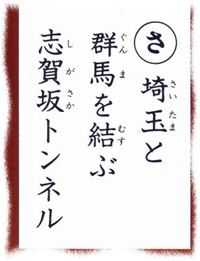 さ
埼玉と
群馬を結ぶ
志賀坂トンネル
さいたま
ぐんま
むす
しがさか